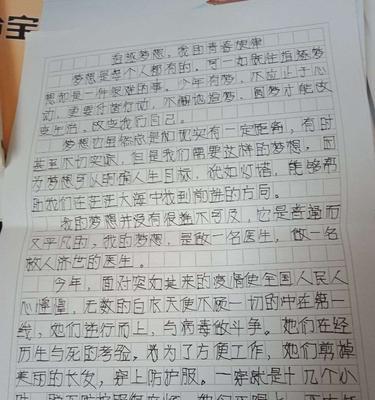 追逐梦想,我的青春旋律
梦想是每个人都有的,可一如既往追逐梦
想却是一件很难的事。少年有梦,不应止于心
动,更要付诸行动,不懈地追梦、圆梦才能改
变生活,改变我们自己。
梦想也虽然总是和现实有一定距离,有时
甚至不切实际,但是我们需要这样的梦想,因
为梦想可以明确人生目标,犹如灯塔,能够帮
助我们在茫茫大海中找到前进的方向。
我的梦想并没有很遥不可及,它是普通而
又平凡的,我的梦想,是做一名医生,做一名
救人济世的医生。
今年,面对突如其来的疫情使全国人民人
心惶惶,无数的白衣天使不顾一切的冲在第一
线,她们逆行而上,与病毒做斗争。她们在经
历生与死的考验,为了方便工作,她们剪掉
美丽的长发,穿上防护服。一穿就是十几个小